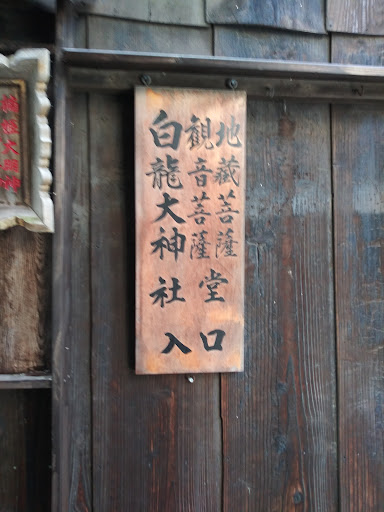 地藏菩薩
観音菩薩
堂
白龍大神社
入口